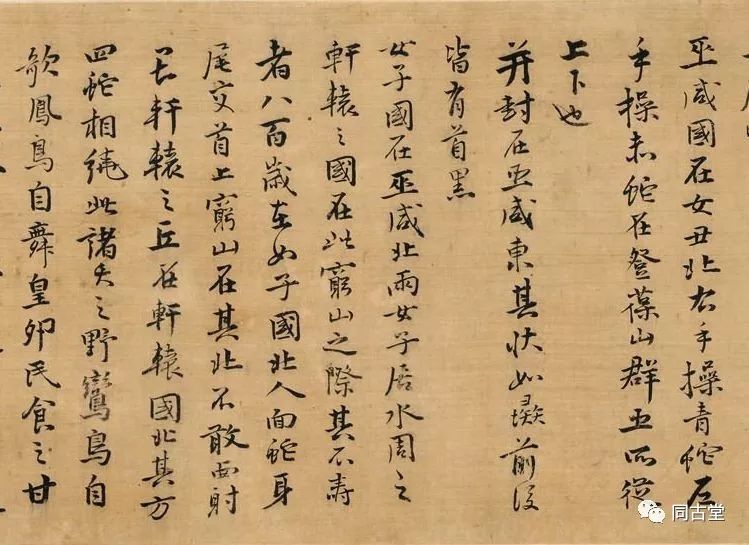 巫咸國在女丑北右手操青蛇左
手操赤蛇在登葆山群巫所從
上下也
并封在巫咸東其狀如彘前後
皆有首黑
女子國在巫咸北兩女子居水周之
軒轅之國在此窮山之際其不壽
者八百歲在女子國北人面蛇身
尾交首上窮山在其北不敢西射
畏軒轅之丘在軒轅國北其方
四蛇相繞此諸夭之野鸞鳥自
歌鳳鳥自舞皇卵民食之甘
同古堂